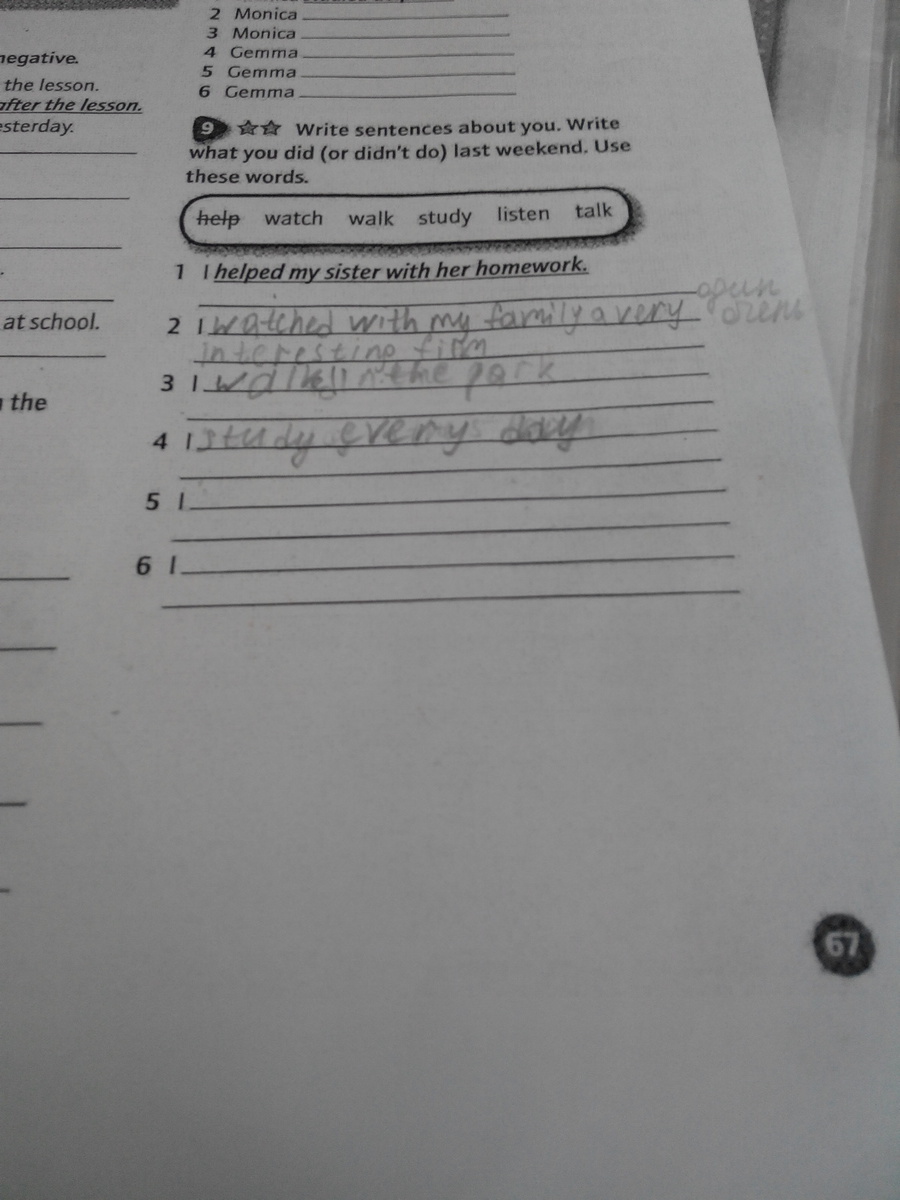 2 Monica
3 Monica
4 Gemma
5 Gemma
6 Gemma
negative.
the lesson.
after the lesson.
esterday.
at school.
the
9 Write sentences about you. Write
what you did (or didn't do) last weekend. Use
these words.
help watch walk study listen talk
1 I helped my sister with her homework.
2 I watched with my family a very
interesting film
3 I walked in the park
4 I study every day
5 I
6 I
67